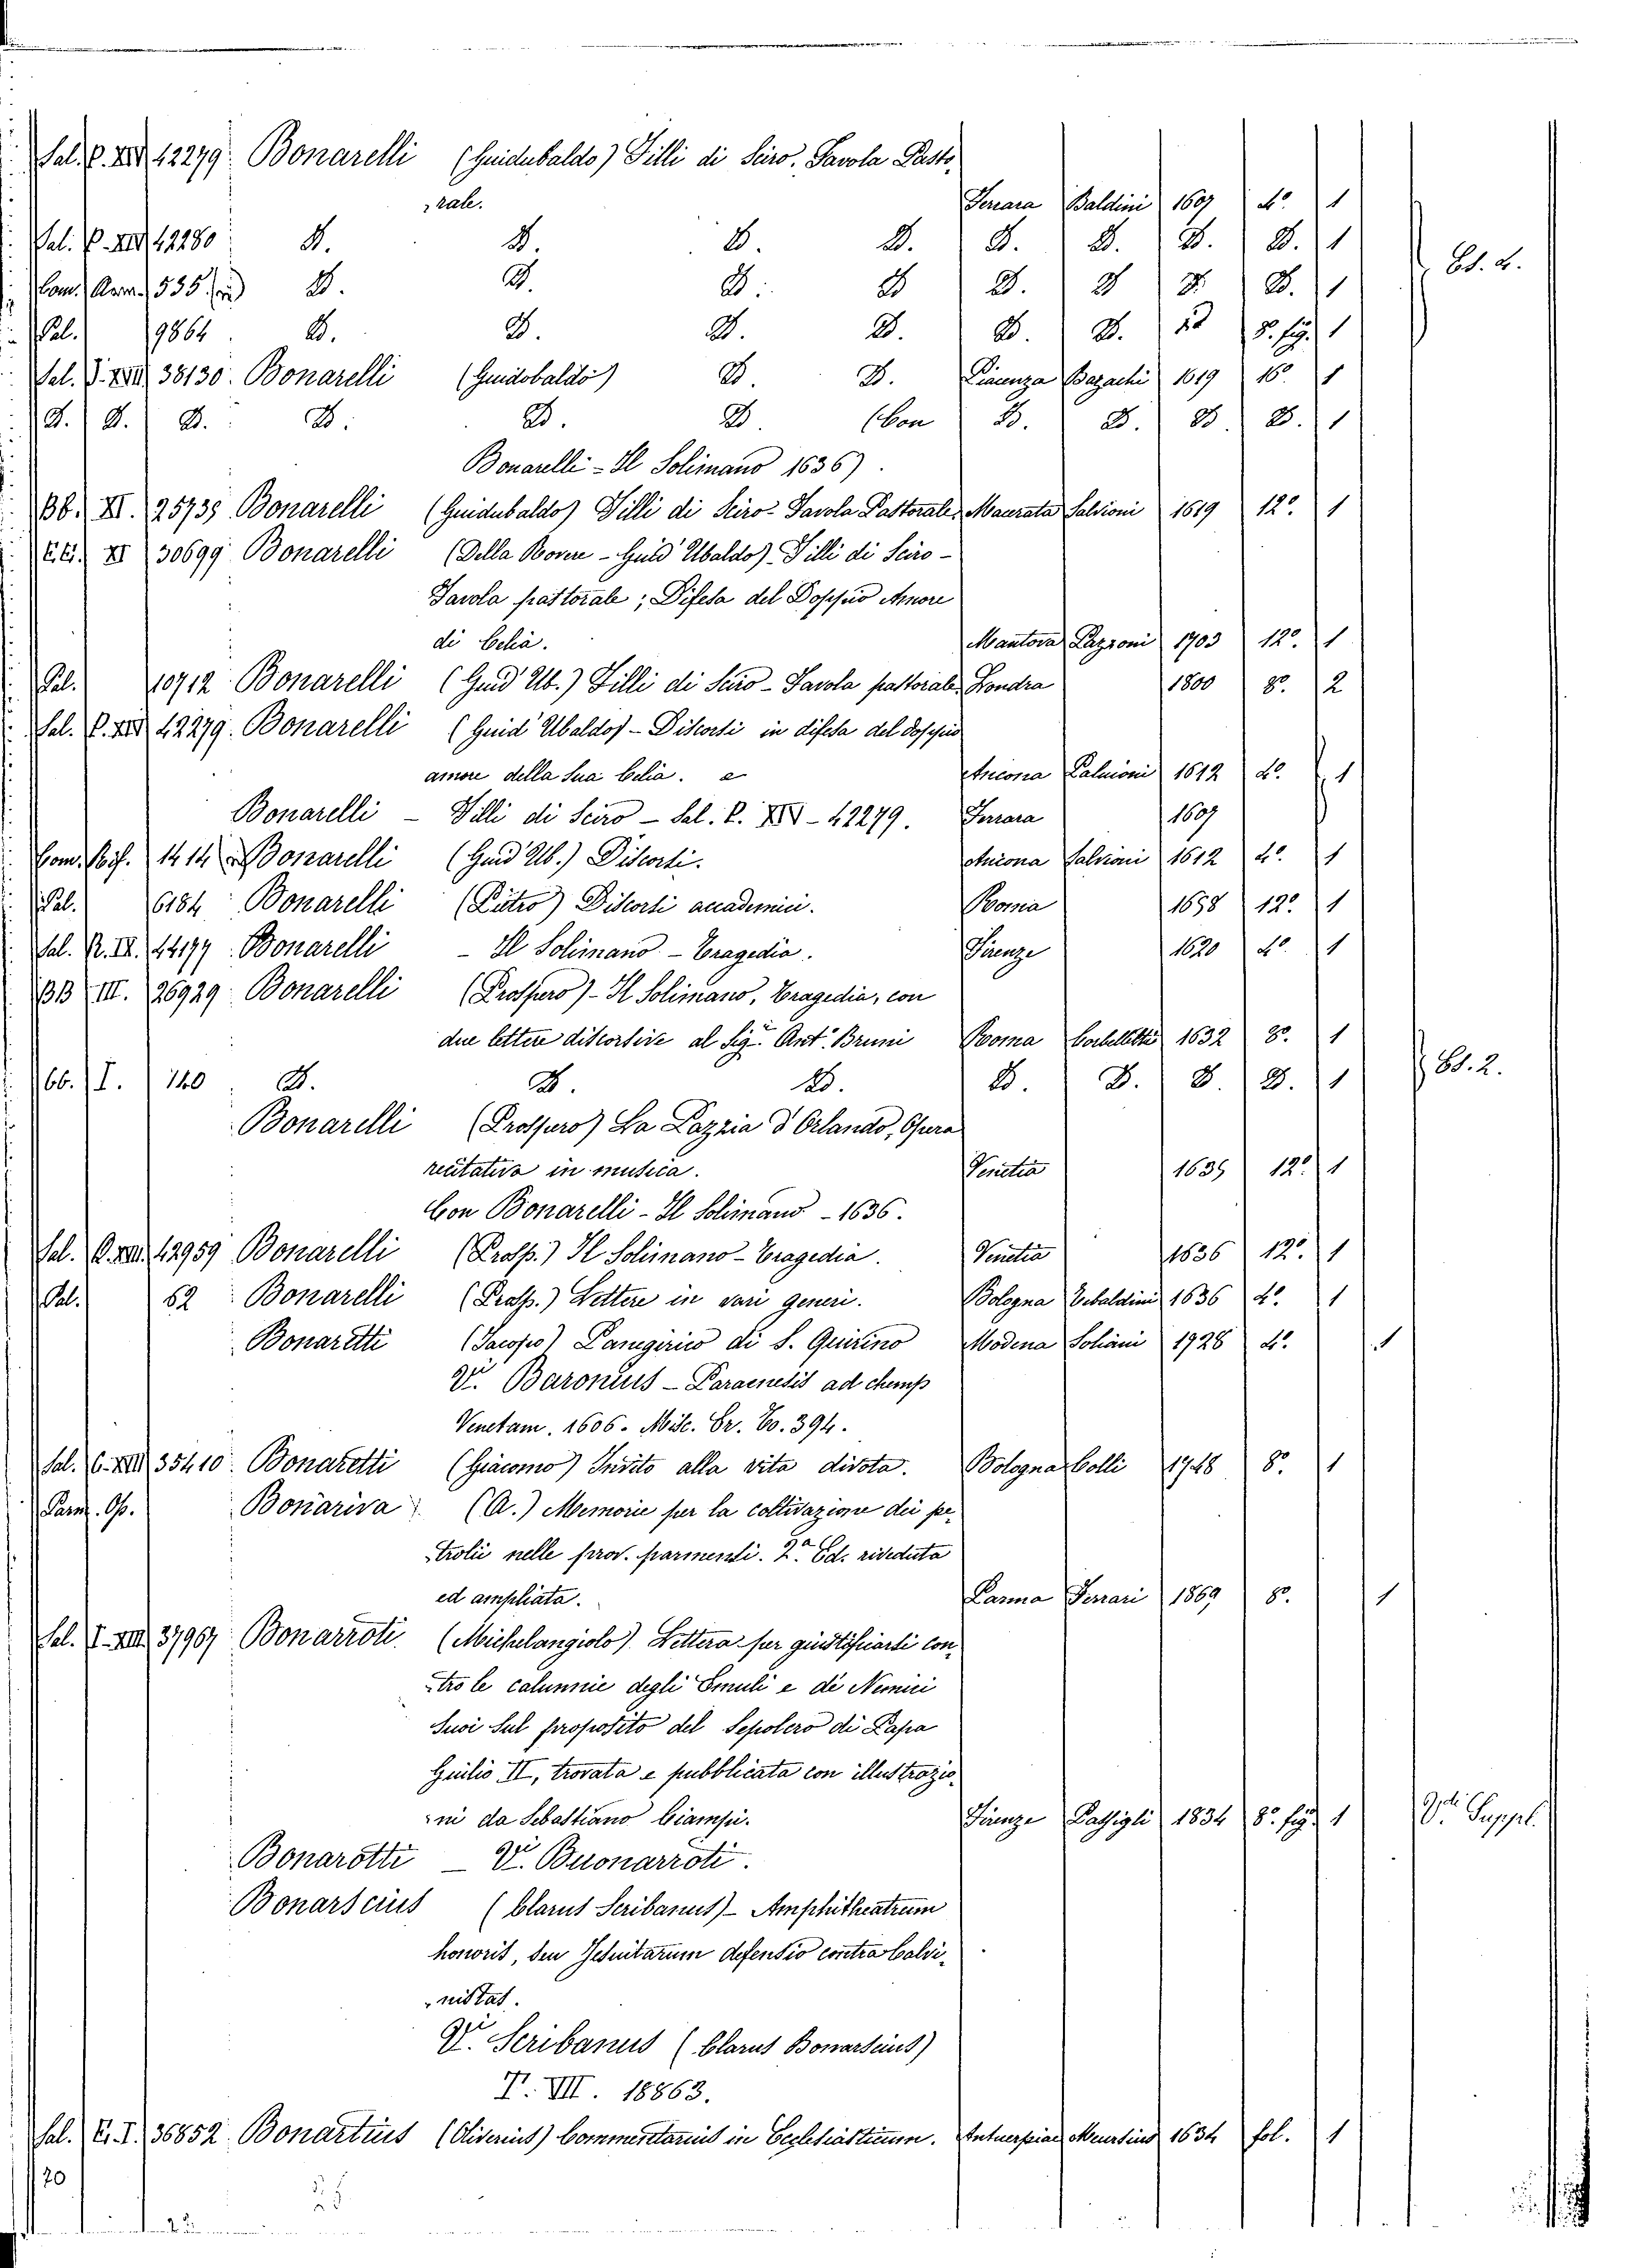 Sal. P. XIV 42279 Bonarelli (Guidubaldo) Filli di Sciro. Favola Pasto-
rale. Ferrara Baldini 1607 4° 1
Sal. P. XIV 42280 D. D. D. D. D. D. D. D. 1
Com. Arm. 535 D. D. D. D D. D D. D. 1 Es. 2.
Pal. 9864 D. D. D. D. D. D. 12° fig. 1
Sal. J. XVII 38130. Bonarelli (Guidobaldo) D. D. Piacenza Bazachi 1619 16° 1
D. D. D. D. D. D. (Con D. D. D. D. 1
Bonarelli - Il Solimano 1636).
BB. XI. 25735 Bonarelli (Guidubaldo) Filli di Sciro - Favola Pastorale. Macerata Salvioni 1619 12° 1
EE. XI 30699 Bonarelli (Della Rovere - Guid' Ubaldo) - Filli di Sciro -
Favola pastorale; Difesa del Doppio Amore
di Celia. Mantova Pazzoni 1703 12° 1
Pal. 10712 Bonarelli (Guid' Ub.) Filli di Sciro - Favola pastorale. Londra 1800 8° 2
Sal. P. XIV 42279. Bonarelli (Guid' Ubaldo) - Discorsi in difesa del doppio
amore della sua Celia. e Ancona Salvioni 1612 4° 1
Bonarelli - Filli di Sciro - Sal. P. XIV - 42279. Ferrara 1607
Com. 1414 Bonarelli (Guid' Ub.) Discorsi. Ancona Salvioni 1612 4° 1
Pal. 6184 Bonarelli (Pietro) Discorsi accademici. Roma 1658 12° 1
Sal. R. IX. 44197 Bonarelli - Il Solimano - Tragedia. Firenze 1620 4° 1
BB III. 26929 Bonarelli (Prospero) - Il Solimano, Tragedia, con
due lettere discorsive al Sig.r Ant.° Bruni Roma Corbelletti 1632 8° 1
bb. I. 140 D. D. D. D. D. D. D. 1 Es. 2.
Bonarelli (Prospero) La Pazzia d'Orlando, Opera
recitativa in musica. Venetia 1635 12° 1
Con Bonarelli - Il Solimano - 1636.
Sal. Q. XIII. 42959 Bonarelli (Prosp.) Il Solimano - Tragedia. Venetia 1636 12° 1
Pal. 52 Bonarelli (Prosp.) Lettere in vari generi. Bologna Tebaldini 1636 4° 1
Bonaretti (Jacopo) Panegirico di S. Quirino Modena Soliani 1728 4° 1
V. Baronius - Paraenesis ad Remp.
Venetam. 1606. Misc. Er. To. 394.
Sal. C. XIII 35410. Bonaretti (Giacomo) Invito alla vita divota. Bologna Colli 1748 8° 1
Parm. Op. Bonariva (A.) Memorie per la coltivazione dei pe-
trolii nelle prov. parmensi. 2.a Ed. riveduta
ed ampliata. Parma Ferrari 1869 8° 1
Sal. I. XIII 37967 Bonarroti. (Michelangiolo). Lettera per giustificarsi con-
tro le calunnie degli Emuli e de Nemici
Suoi sul proposito del Sepolcro di Papa
Giulio II, trovata e pubblicata con illustrazio-
ni da Sebastiano Ciampi. Firenze Passigli 1834 8° fig. 1 V. Suppl.
Bonarotti - V. Buonarroti.
Bonarscius (Clarus Scribanus) - Amphitheatrum
honoris, seu Jesuitarum defensio contra Calvi-
nistas.
V. Scribanus (Clarus Bonarscius)
T. VII. 18863.
Sal. E. I. 36852 Bonartius (Oliverius) Commentarius in Ecclesiasticum. Antuerpiae Meursius 1634 fol. 1
20